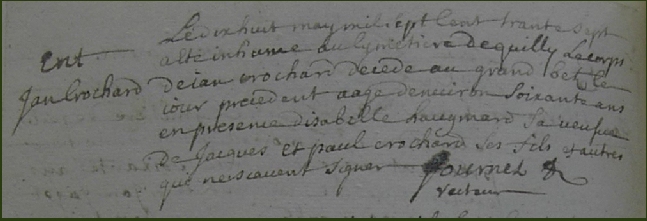 Le dix huit may mil sept cent trante sept
Ent
a esté inhumé au cymetiere de quilly le corps
Jan Crochard
de jan crochard decede au grand betz le
jour precedent aagé denviron soixante ans
en presence disabelle haugmard sa veufue
De Jacques et paul crochard ses fils et autres
qui ne scavent signer Fournel
recteur